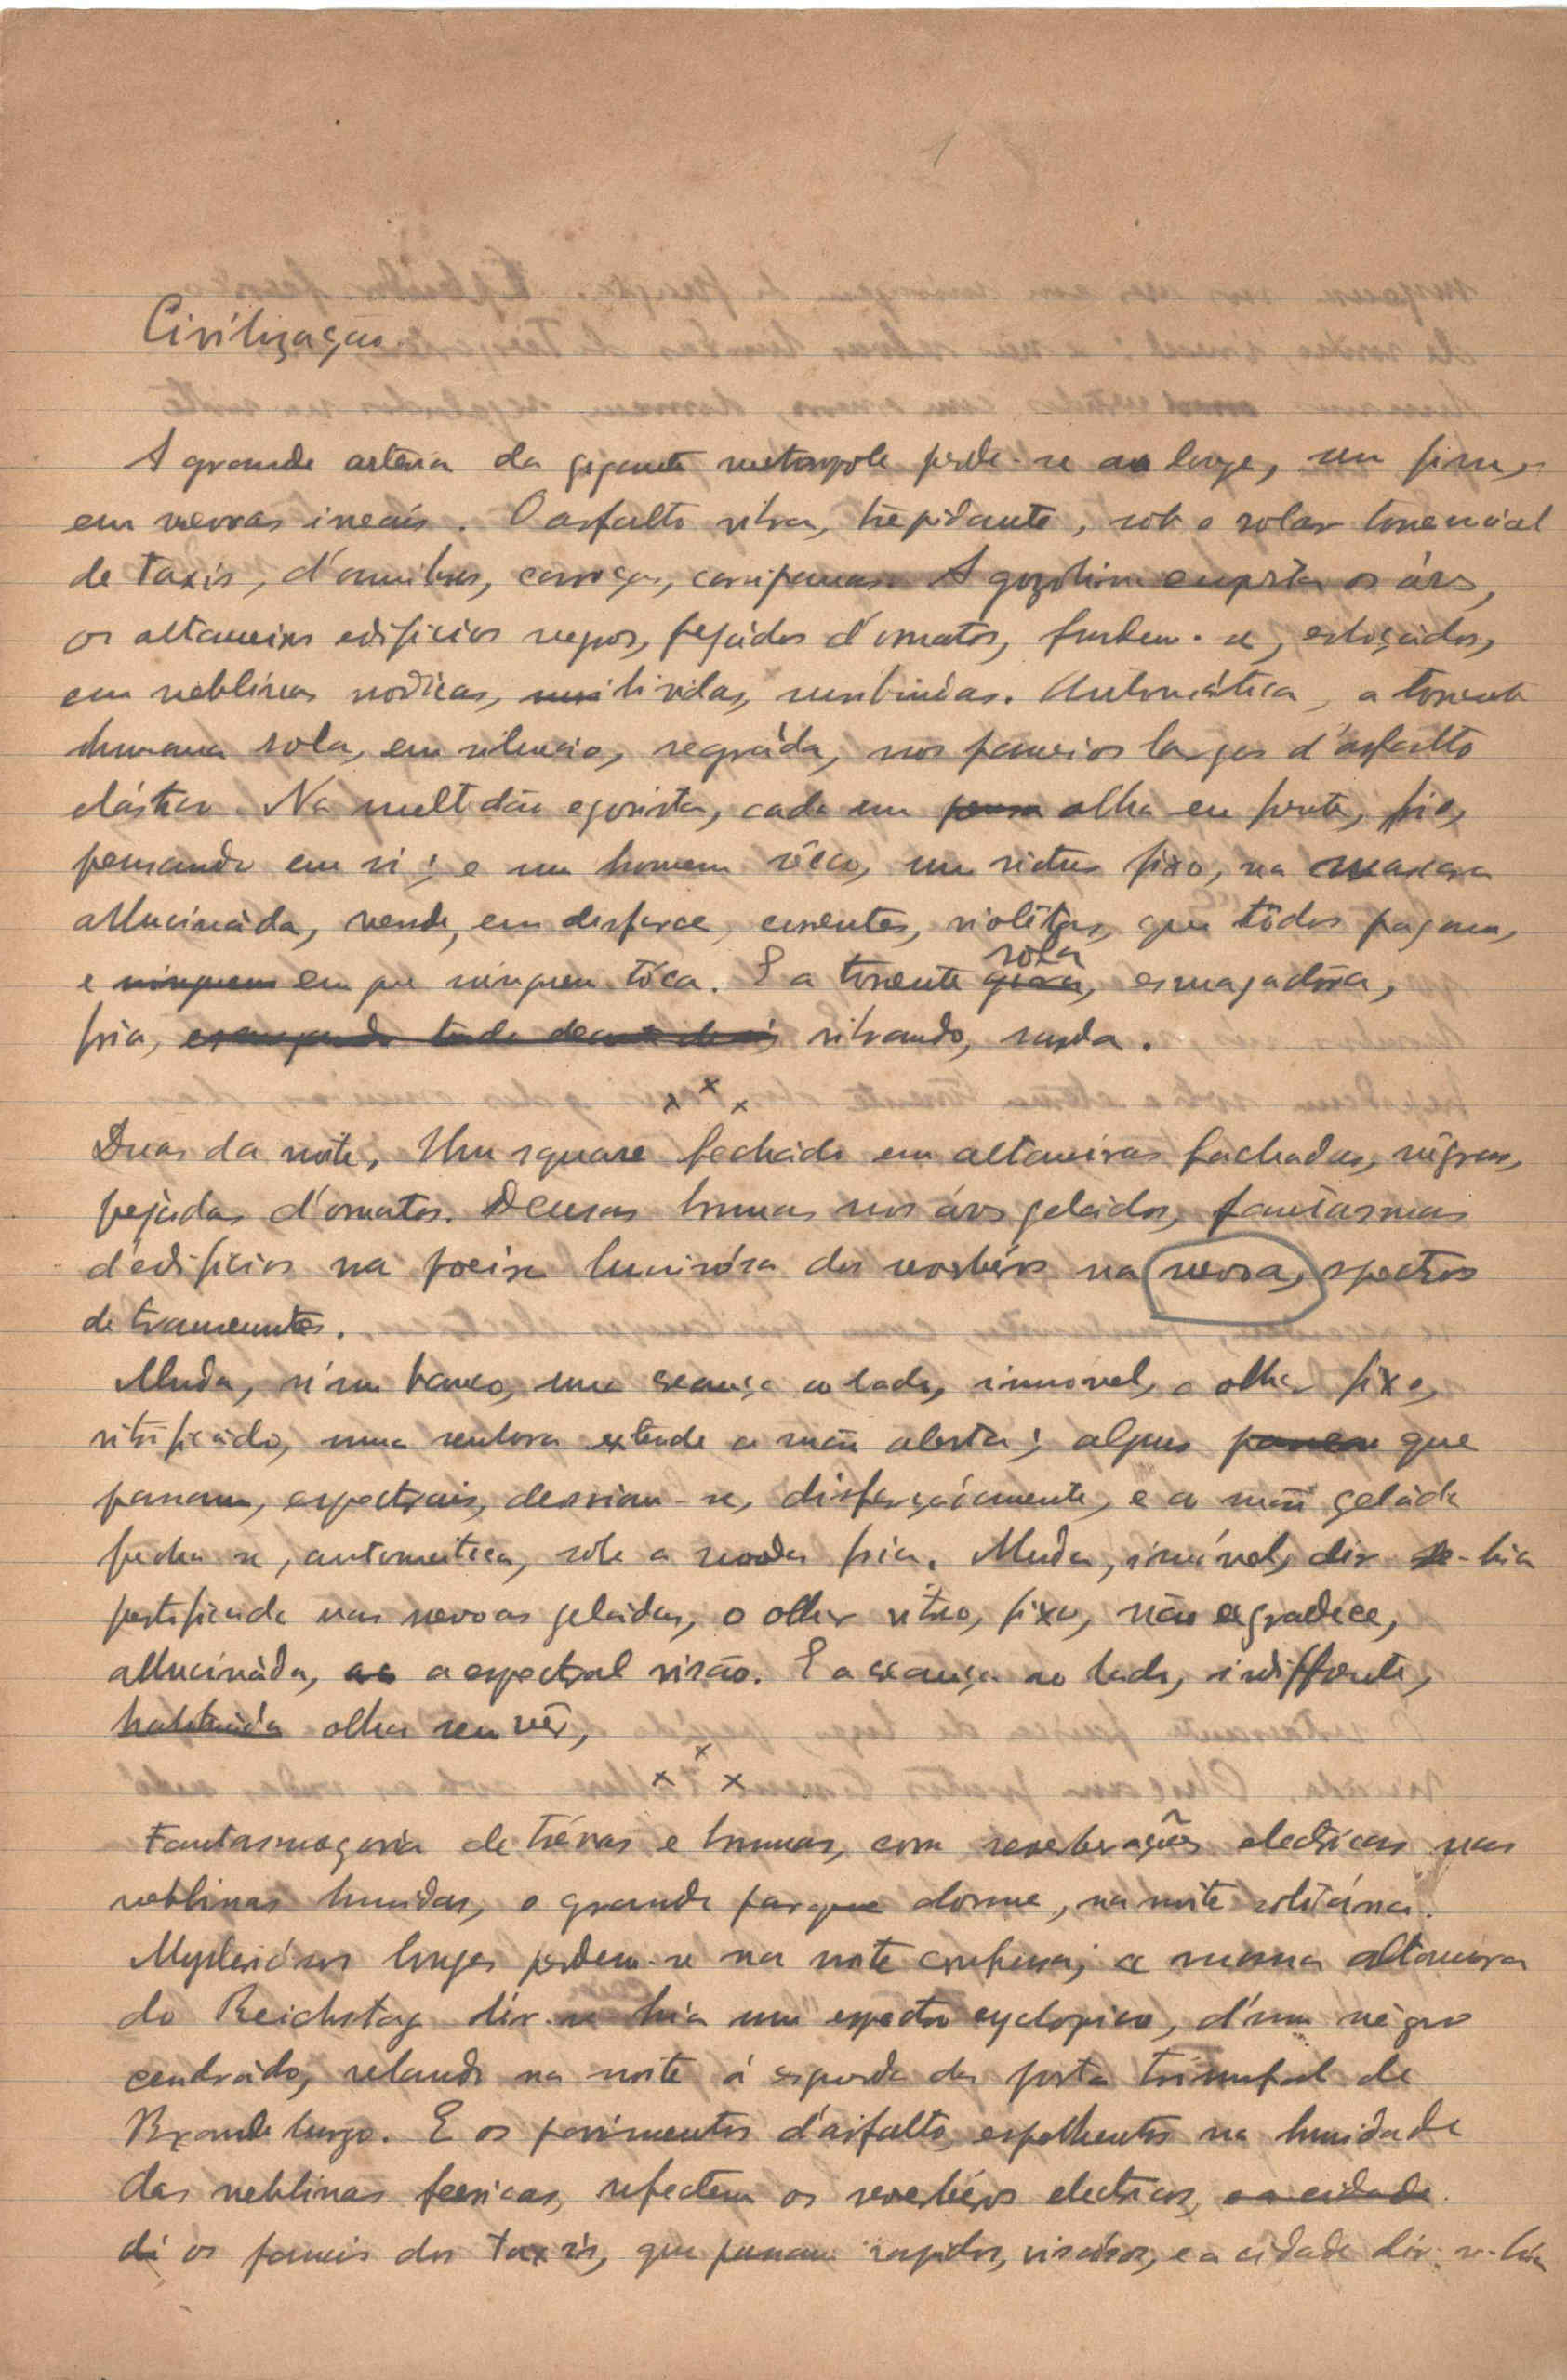 1
Civilização.
A grande artéria da gigante metropole perde-se ao longe, sem fim,
em nevoas ineais. O asfalto vibra, trepidante, sob o rolar torrencial
de taxis, d'omnibus, carroças, A gazolina empesta os áres,
os altaneiros edificios negros, pejados d'ornatos, fundem-se, esboçados,
em neblinas nordicas, lividas, Automática, a torrente
humana rola, em silencio, regráda, nos passeios largos d'asfalto
elástico. Na multidão egoista, cada um passa olha em frente, frio,
pensando em si; e um homem sêco, um rictus fixo, na mascara
allucináda, vende, em disfarce, violêtas, que tôdos pagam,
e ninguem em que ninguem tóca. E a torrente gira, rola esmagadôra,
fria, esmagando tudo deante de si, vibrando, surda.
x x x
Duas da noite, Um square fechado em altaneiras fachadas, nègras,
pejadas d'ornatos. Densas brumas nos áres gelados, fantasmas
d'edificios na poeira luminósa dos revérbéros na nevoa, spectros
de transeuntes.
Muda, n'um banco, uma creança ao lado, immovel, o olhar fixo,
vitrificádo, uma senhora extende a mão aberta; alguns passam que
passam, espectrais, desviam-se, disfarçádamente, e a mão geláda
fecha-se, automatica, sobre a moeda fria. Muda, imóvel, dir-se-hia
petrificada nas nevoas geladas, o olhar vitreo, fixo, não agradece,
allucináda, a espectral visão. E a creança ao lado, indifferente,
habituada olha sem vêr,
x x x
Fantasmagoria de trévas e brumas, com reverberações electricas nas
neblinas humidas, o grande parque dorme, na noite solitária.
Mysteriósos longes perdem-se na noite confusa; a massa altaneira
do Reichstag dir-se-hia um espectro cyclopico, d'um nègro
cendrádo, velando na noite á esquerda da porta triumfal de
Brandeburgo. E os pavimentos d'asfalto, espelhentos na humidade
das neblinas feericas, refectem os reverbéros electricos, e a cidade
di os farois dos taxis, que passam rapidos, e a cidade dir-se-hia